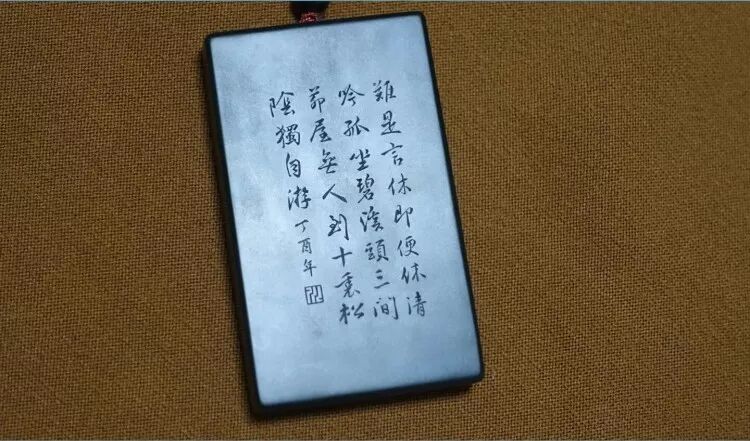 難是言休即便休清
吟孤坐碧溪頭三间
茆屋無人到十裏松
陰獨自游丁酉年